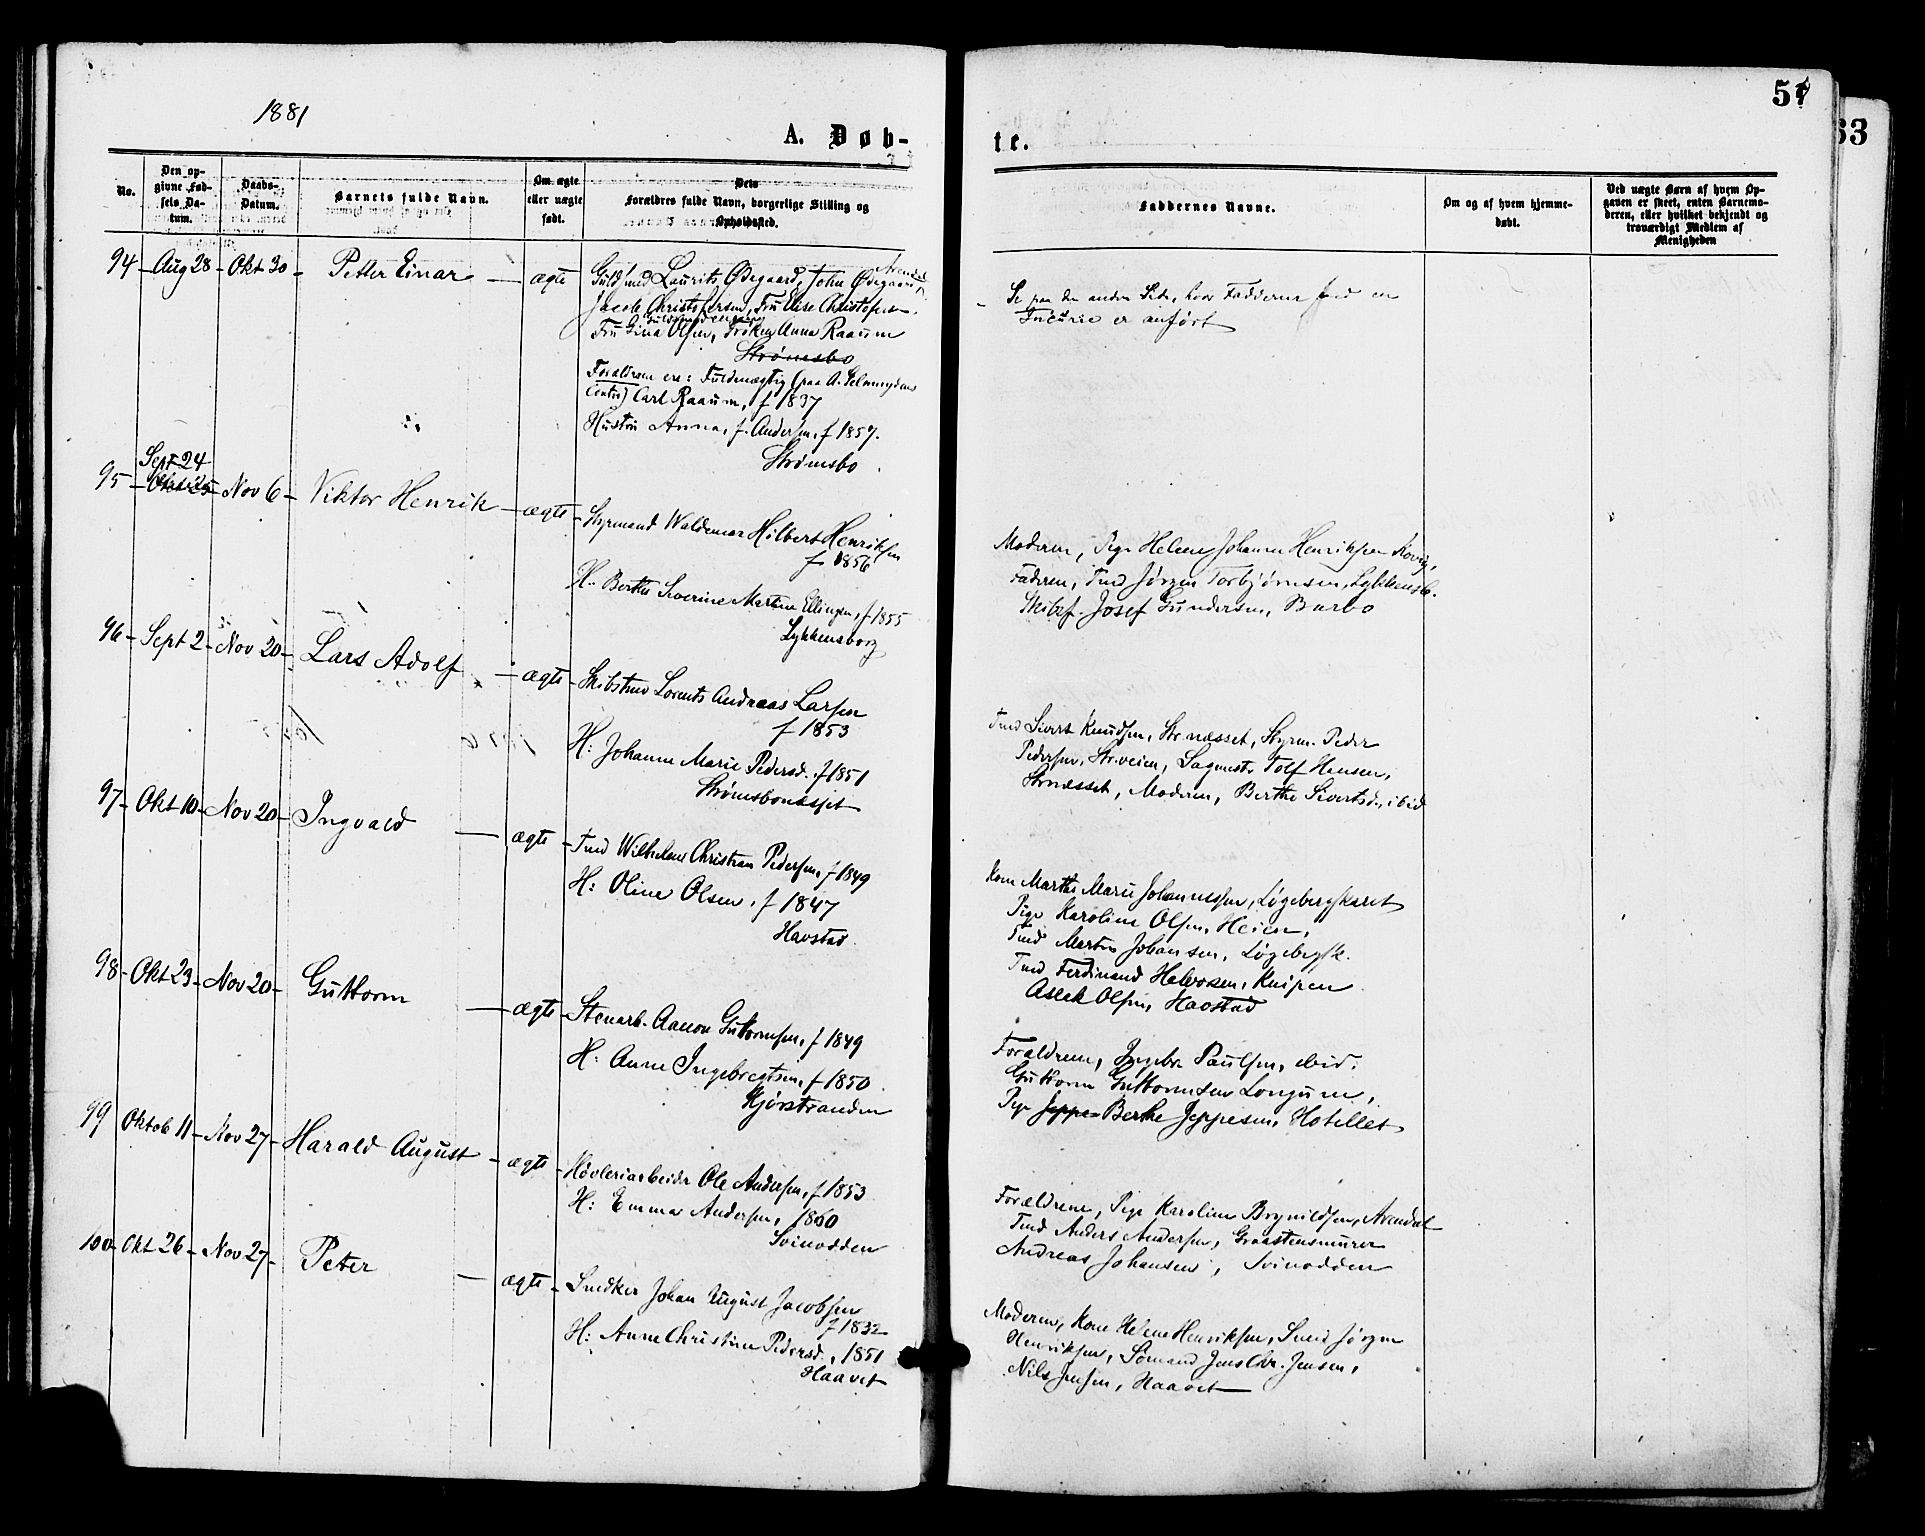 1881
A. Døb-
No.
Den op-
givne Fød-
sels Da-
tum.
Daabs-
Datum.
Barnets fulde Navn.
Om ægte
eller uægte
født.
Dets
Forældres fulde Navn, borgerlige Stilling og
Opholdssted.
94 - Aug 28 - Okt 30 - Petter Einar - ægte
Guldsmed Laurits Ødegaard, John Ødegaard, Arendal
Jacob Christophersen, Fru Elise Christophersen.
Fru Gina Olsen, Frøken Anna Raaum
Strømsbo
Forældrene ere: Fuldmægtig (paa A.
Contor) Carl Raaum, f 1837
Hustru Anna, f. Andersen, f 1857.
Strømsbo
Sept 24
95 - Nov 6 - Viktor Henrik - ægte - Styrmand Waldemar Hilbert Henriksen
f 1856
H. Berthe Severine Martine Ellingsen, f 1855
Lykkensborg
96 - Sept 2 - Nov 20 - Lars Adolf - ægte - Skibstmd Lorents Andreas Larsen
f 1853
H: Johanne Marie Pedersd. f 1851
Strømsbonæsset
97 - Okt 10 - Nov 20 - Ingvald - ægte - Tmd Wilhelm Christian Pedersen, f 1849
H: Oline Olsen, f 1847
Havstad
98 - Okt 23 - Nov 20 - Guttorm - ægte - Stenarb. Aanon Guttormsen, f 1849
H: Anne Ingebregtsen, f 1850
Kjørstranden
99 Oktob 11 - Nov 27 - Harald August - ægte - Høvleriarbeider Ole Andersen, f 1853
H: Emma Andersen, 1860
Svinodden
100 - Okt 26 - Nov 27 - Peter - ægte - Snedker Johan August Jacobsen
f 1832
H: Anne Christine Pedersd., 1851
Haavet
57
63
te.
Faddernes Navne.
Om og af hvem hjemme-
døbt.
Ved uægte Børn af hvem Op-
gaven er skeet, enten Barnemo-
deren, eller hvilket bekjendt og
troværdigt Medlem af
Menigheden
Se paa den anden Side, hvor Fadderne ved en
Incurie er anført
Moderen, Pige Helene Johanne Henriksen
Faderen, Tmd Jørgen Torbjørnsen, Lykkensb.
Skibsf. Josef Gundersen, Barbo
Tmd Sivert Knudsen, Str.næsset, Styrm. Peder
Pedersen, Str.veien, Sagmestr Tolf Hansen,
Strnæsset, Moderen, Berthe Sivertsd., ibid
Kone Marthe Marie Johannessen, Løgebergskaret
Pige Karoline Olsen, Heien,
Tmd Martin Johansen, Løgebergsk.
Tmd Ferdinand Halvorsen, Knipen
Aslak Olsen, Havstad
Forældrene, Ingebr. Paulsen, ibid.
Guttorm Guttormsen Longum,
Pige Jeppe Berthe Jeppesen, Hotellet
Forældrene, Pige Karoline Brynildsen, Arendal
Tmd Anders Andersen, Graastensmurer
Andreas Johansen, Svinodden
Moderen, Kone Helene Henriksen, Smed Jørgen
Henriksen, Sømand Jens Chr. Jensen,
Nils Jensen, Haavet